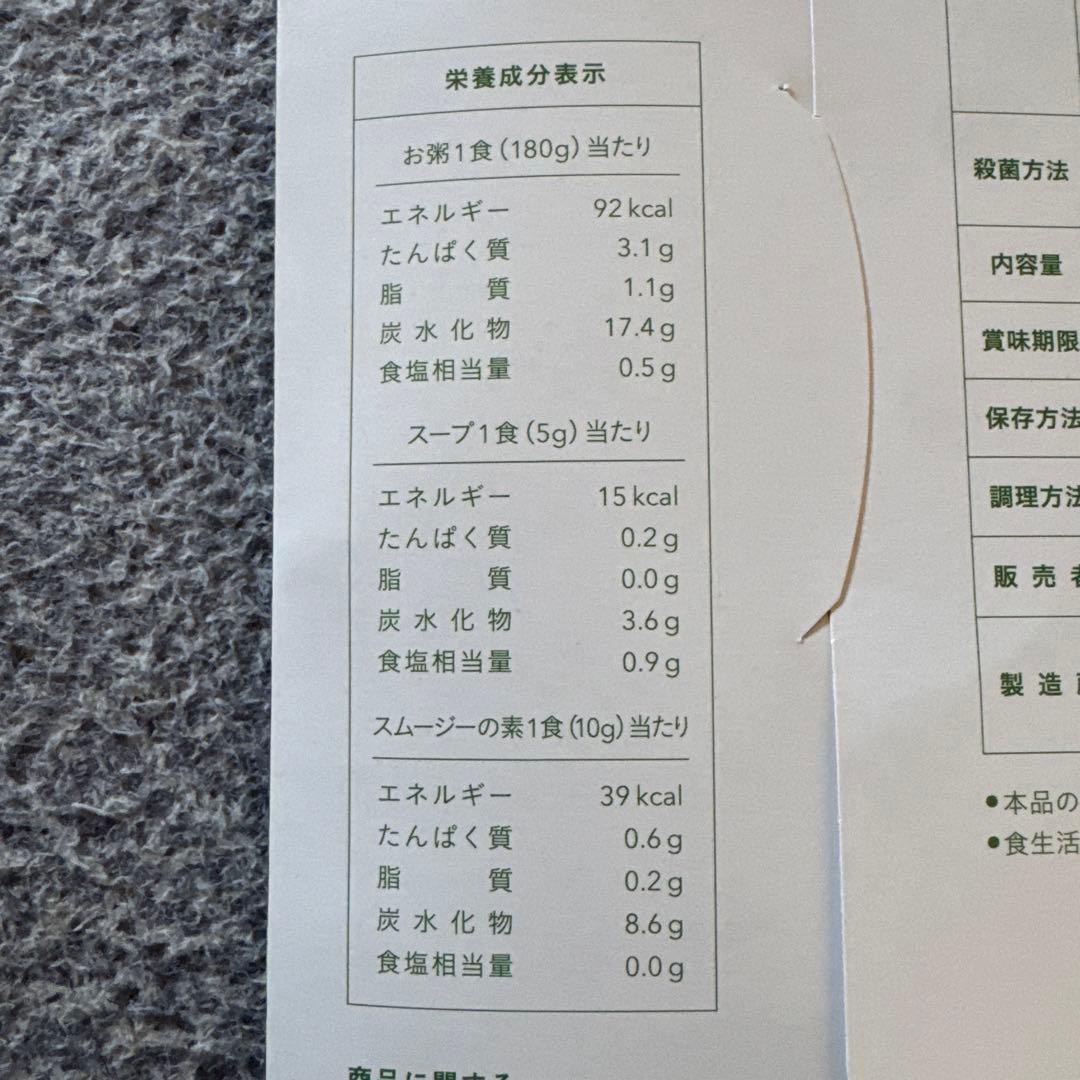 栄養成分表示
お粥1食(180g)当たり
エネルギー 92kcal
たんぱく質 3.1g
脂質 1.1g
炭水化物 17.4g
食塩相当量 0.5g
スープ1食(5g)当たり
エネルギー 15kcal
たんぱく質 0.2g
脂質 0.0g
炭水化物 3.6g
食塩相当量 0.9g
スムージーの素1食(10g)当たり
エネルギー 39kcal
たんぱく質 0.6g
脂質 0.2g
炭水化物 8.6g
食塩相当量 0.0g
商品に関する
殺菌方法
内容量
賞味期限
保存方法
調理方法
販売
製造
●本品の
●食生活